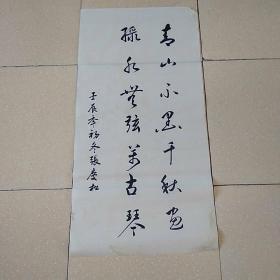 青山不墨千秋画
绿水无弦万古琴
壬辰年初冬张庆松